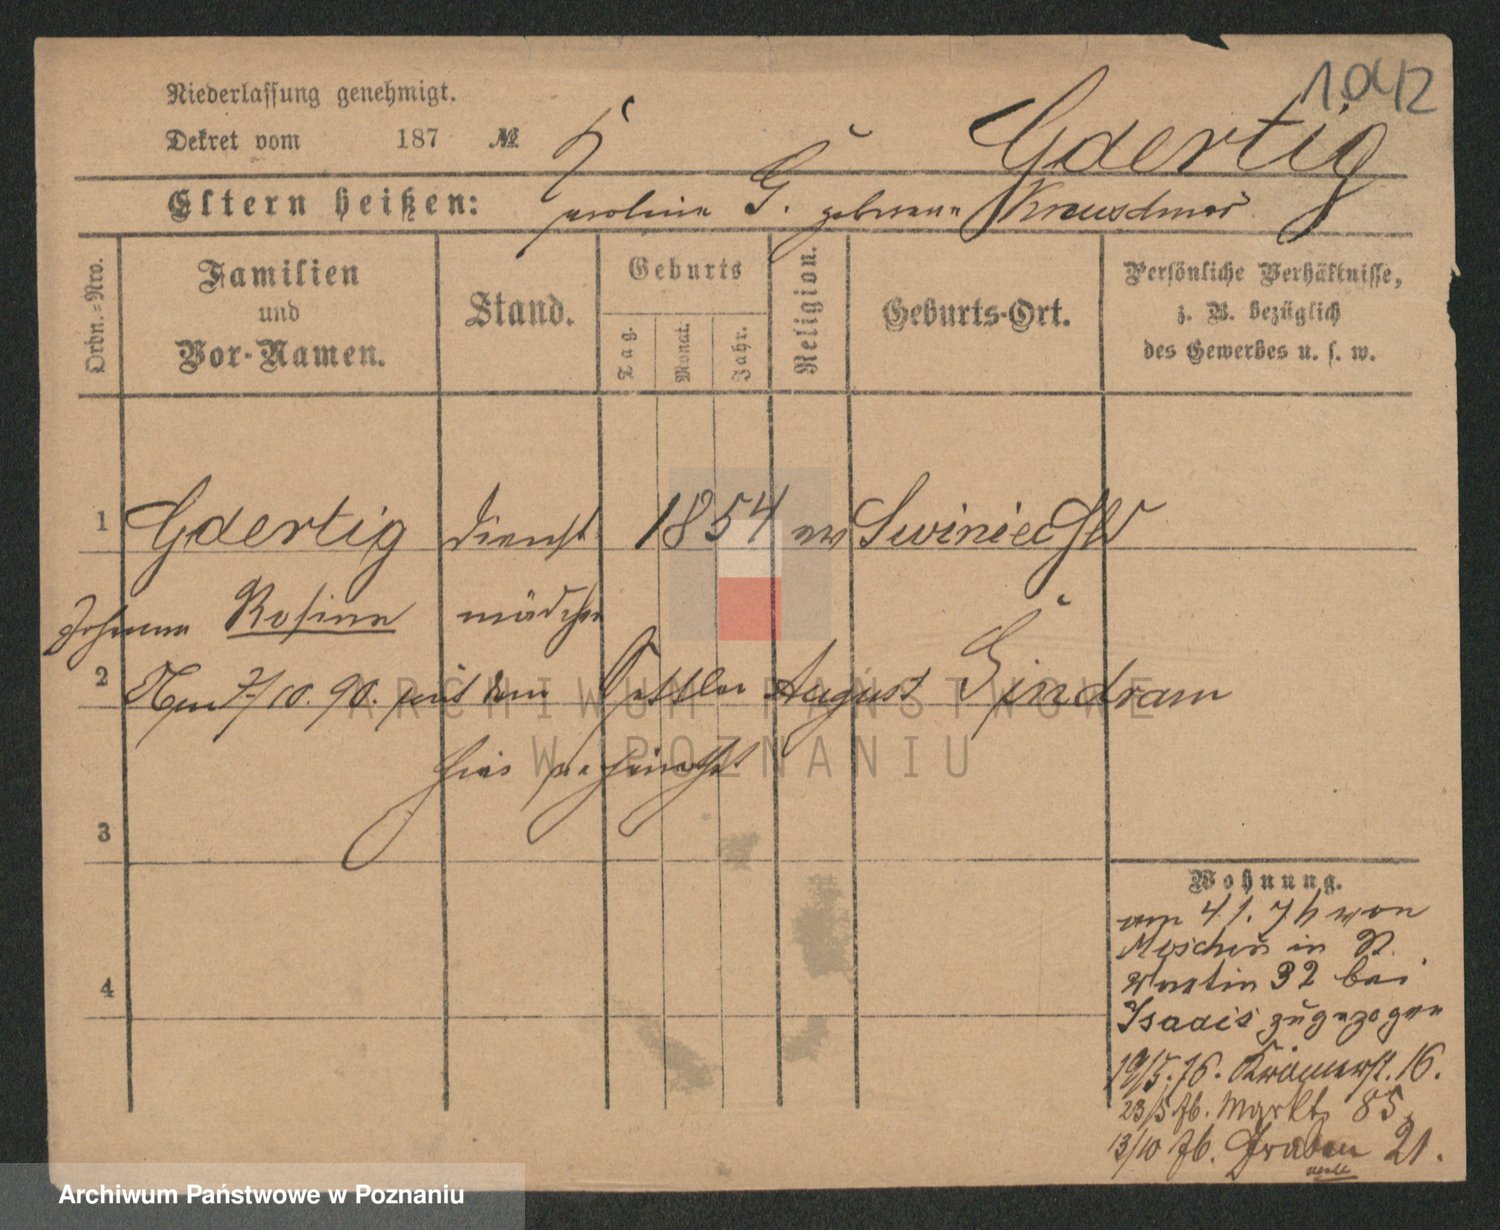 1042
Niederlassung genehmigt.
Dekret vom 187 №
Gdertig
Eltern heißen:
Karoline G. geborene
Ordn.-Nro.
Familien
und
Vor-Namen.
Stand.
Geburts
Tag.
Monat.
Jahr.
Religion.
Geburts-Ort.
Persönliche Verhältnisse,
z. B. bezüglich
des Gewerbes u. s. w.
1 Gdertig Dienst 1854 ev
Johanna Rosine mädchen
2 Am 7/10. 90. mit dem Sattler August Gindram
hier verheirathet
3
4
Wohnung.
am 4/1. 76 von
Moschin in St.
Martin 32 bei
Isaacs zugezogen
19/5. 76. Krämerst. 16.
23/5 76. Markt 85.
13/10 76. Graben 21.
ARCHIWUM PAŃSTWOWE
W POZNANIU
Archiwum Państwowe w Poznaniu